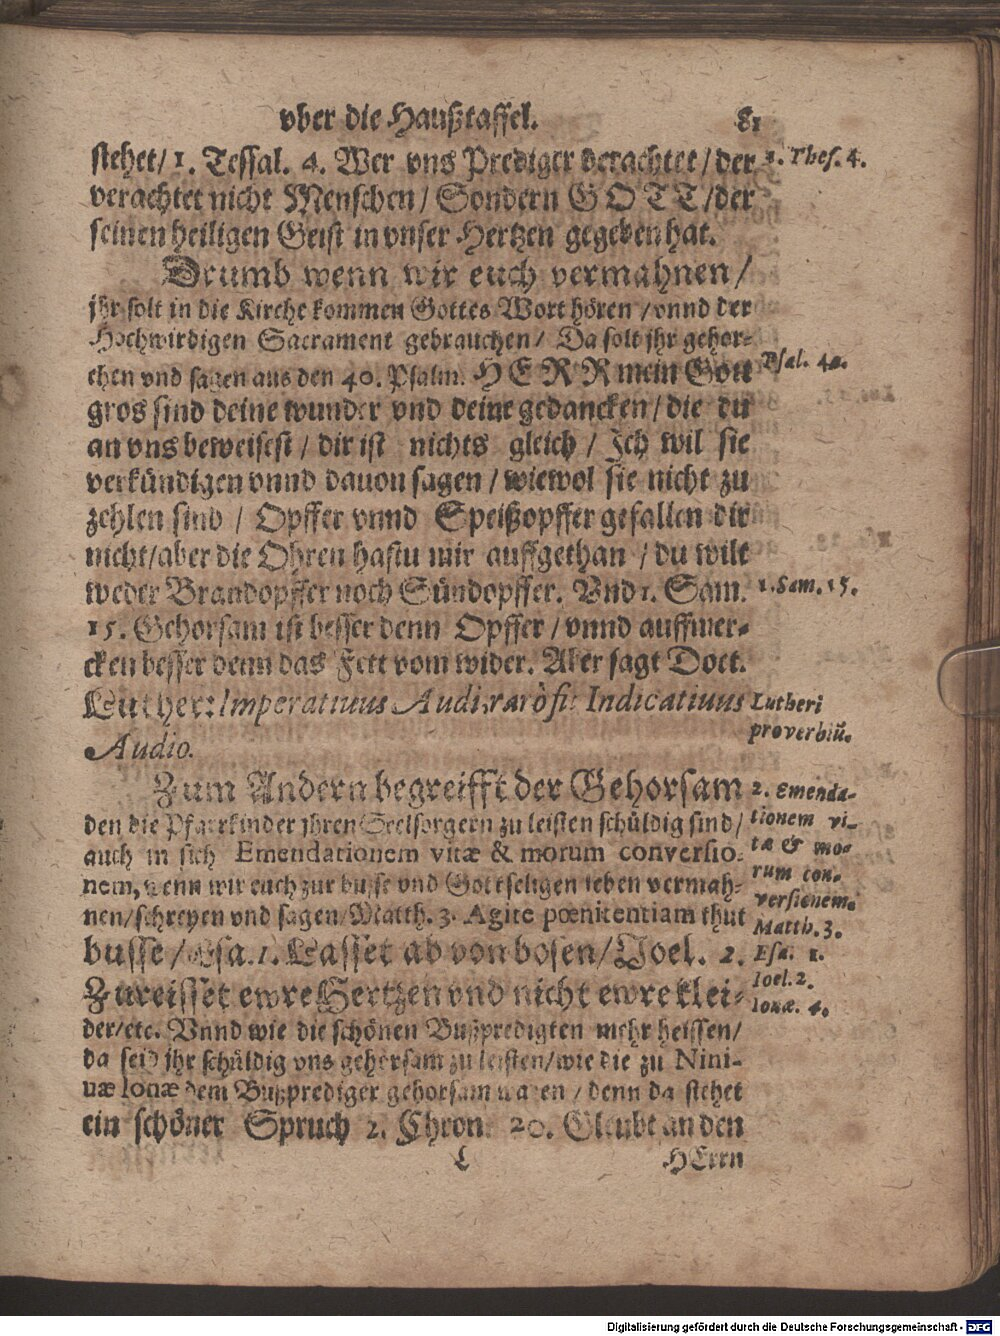 vber die Haußtaffel. 81
stehet/ 1. Tessal. 4. Wer vns Prediger verachtet/ der
1. Thes. 4.
verachtet nicht Menschen/ Sondern GOTT/der
seinen heiligen Geist in vnser Hertzen gegeben hat.
Drumb wenn wir euch vermahnen/
jhr solt in die Kirche kommen Gottes Wort hören/vnnd der
Hochwirdigen Sacrament gebrauchen/ Da solt jhr gehor-
chen vnd sagen aus den 40. Psalm. HERR mein Gott
Psal. 40.
gros sind deine wunder vnd deine gedancken/die du
an vns beweisest/ dir ist nichts gleich/ Ich wil sie
verkündigen vnnd dauon sagen/wiewol sie nicht zu
zehlen sind/ Opffer vnnd Speißopffer gefallen dir
nicht/aber die Ohren hastu mir auffgethan/du wilt
weder Brandopffer noch Sündopffer. Vnd 1. Sam.
1. Sam. 15.
15. Gehorsam ist besser denn Opffer/vnnd auffmer-
cken besser denn das Fett vom wider. Aber sagt Doct.
Luther: Imperatiuus Audi, rarò fit Indicatiuus
Lutheri
proverbiũ.
Audio.
Zum Andern begreifft der Gehorsam
2. Emenda-
den die Pfarrkinder jhren Seelsorgern zu leisten schüldig sind/
tionem vi-
auch in sich Emendationem vitæ & morum conversio-
tæ & mo-
nem, wenn wir euch zur busse vnd Gottseligen leben vermah-
rum con-
versionem.
nen/schreyen vnd sagen/Matth. 3. Agite pœnitentiam thut
Matth. 3.
busse/Esa. 1. Lasset ab von bösen/Joel. 2.
Esa. 1.
Zureisset ewre Hertzen vnd nicht ewre klei-
Ioel. 2.
Ionæ. 4.
der/etc. Vnnd wie die schönen Bußpredigten mehr heissen/
da seid jhr schüldig vns gehorsam zu leisten/wie die zu Nini-
uæ Ionæ dem Bußprediger gehorsam waren/ denn da stehet
ein schöner Spruch 2. Chron. 20. Gleubt an den
L HErrn
Digitalisierung gefördert durch die Deutsche Forschungsgemeinschaft - DFG